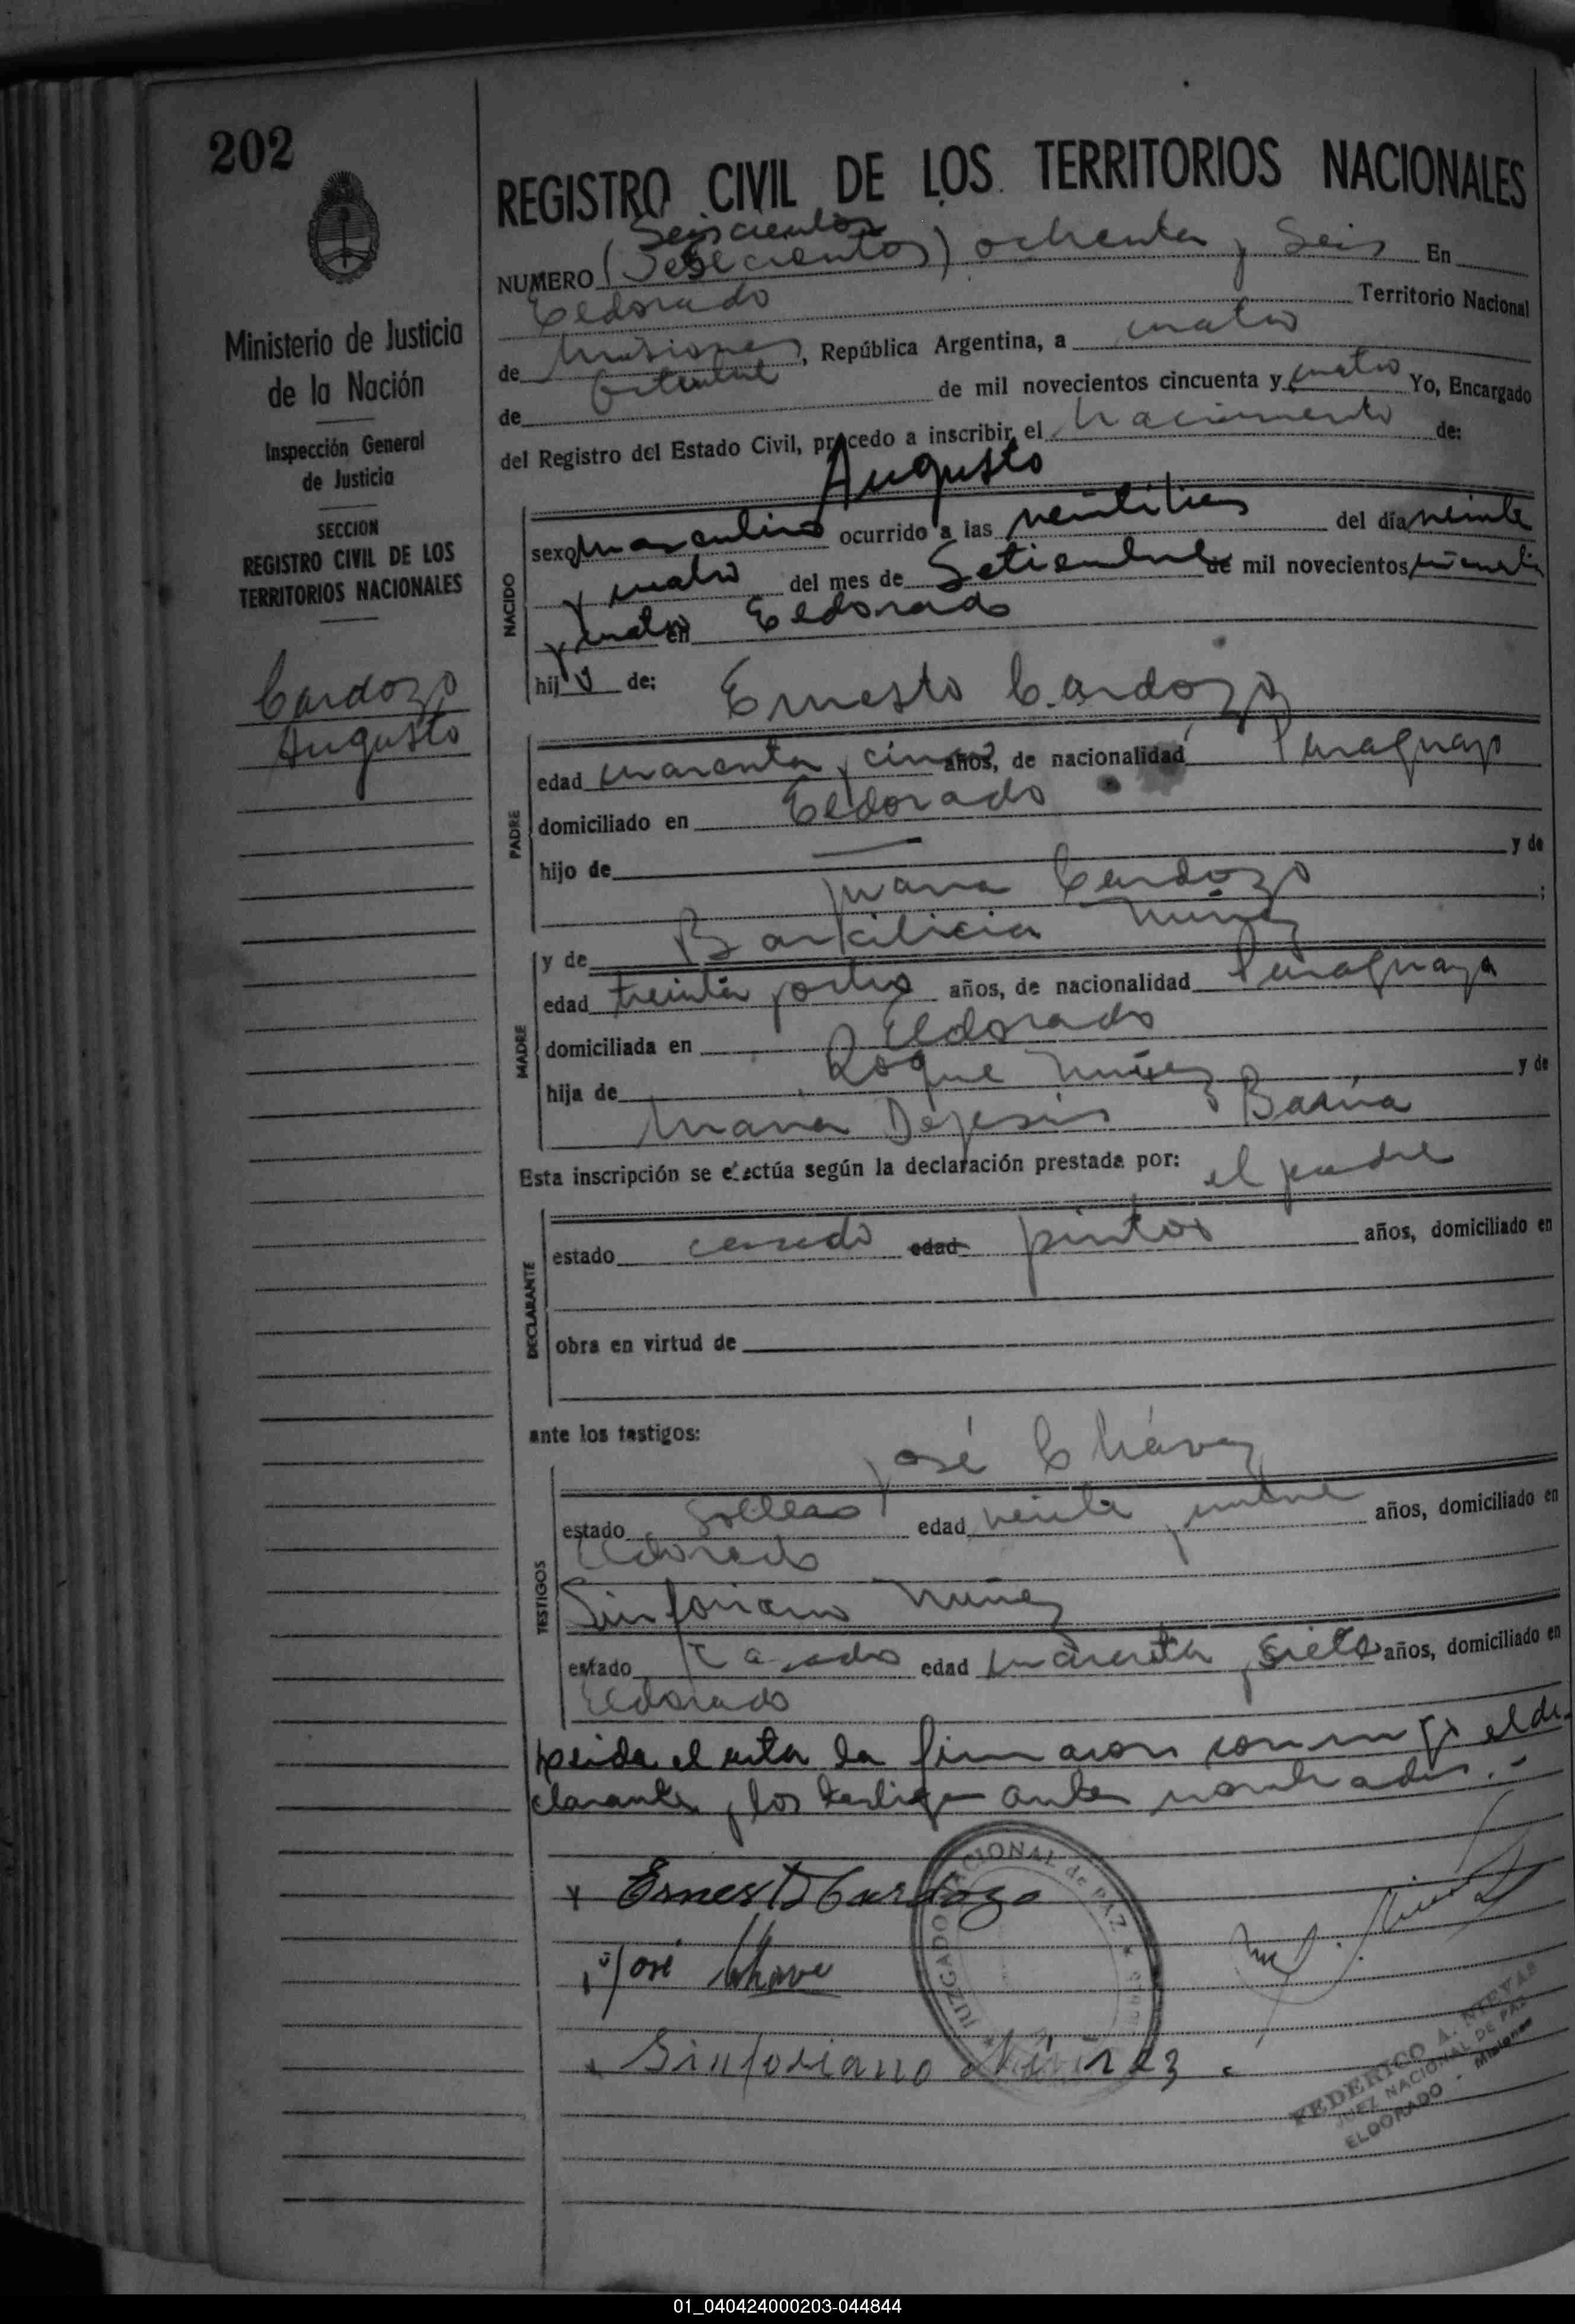 202
REGISTRO CIVIL DE LOS TERRITORIOS NACIONALES
Seiscientos
NUMERO ( ) ochenta y Seis En
Eldorado Territorio Nacional
de Misiones, República Argentina, a cuatro
de Octubre de mil novecientos cincuenta y cuatro Yo, Encargado
del Registro del Estado Civil, procedo a inscribir el Nacimiento de:
Ministerio de Justicia
de la Nación
Inspección General
de Justicia
SECCION
REGISTRO CIVIL DE LOS
TERRITORIOS NACIONALES
Cardozo
Augusto
NACIDO
Augusto
sexo masculino ocurrido a las veintitres del día veinte
y cuatro del mes de Setiembre de mil novecientos cincuenta
y cuatro en Eldorado
hijo de: Ernesto Cardozo
PADRE
edad cuarenta y cinco años, de nacionalidad Paraguayo
domiciliado en Eldorado
hijo de — y de
Juana Cardozo ;
y de Nuñez
MADRE
edad treinta y ocho años, de nacionalidad Paraguaya
domiciliada en Eldorado
hija de Roque Nuñez y de
Maria Dejesús
Esta inscripción se efectúa según la declaración prestada por: el padre
DECLARANTE
estado casado edad años, domiciliado en
obra en virtud de
ante los testigos:
José Chávez
TESTIGOS
estado Soltero edad veinte y nueve años, domiciliado en
Eldorado
Sinforiano Nuñez
estado Casado edad cuarenta y siete años, domiciliado en
Eldorado
Leida el acta la firmaron conmigo el de-
clarante y los testigos antes nombrados.-
Ernesto Cardozo
José Chave
Sinforiano Núñez
JUZGADO NACIONAL de PAZ
FEDERICO A. NIEVAS
JUEZ NACIONAL DE PAZ
ELDORADO - Misiones
01_040424000203-044844